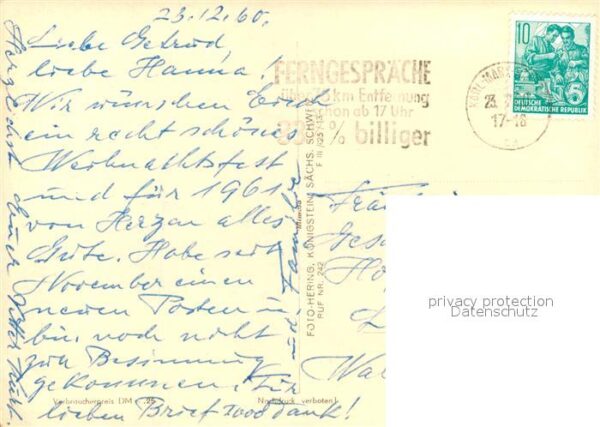 23.12.60.
Liebe Getrud,
liebe Hanna!
Wir wünschen Euch
ein recht schönes
Weihnachtsfest
und für 1961
von Herzen alles
Gute. Habe seit
November einen
neuen Posten u.
bin noch nicht
zur Besinnung
gekommen. Für
lieben Brief 1000 Dank!
Herzlichst Euch
FERNGESPRÄCHE
über 75 km Entfernung
schon ab 17 Uhr
33 % billiger
KARL-MARX
23.
17-18
10
5
DEUTSCHE
DEMOKRATISCHE REPUBLIK
FOTO-HERING, KÖNIGSTEIN/SÄCHS. SCHWEIZ
RUF NR. 242
Verbraucherpreis DM -,25
Nachdruck verboten!
privacy protection
Datenschutz